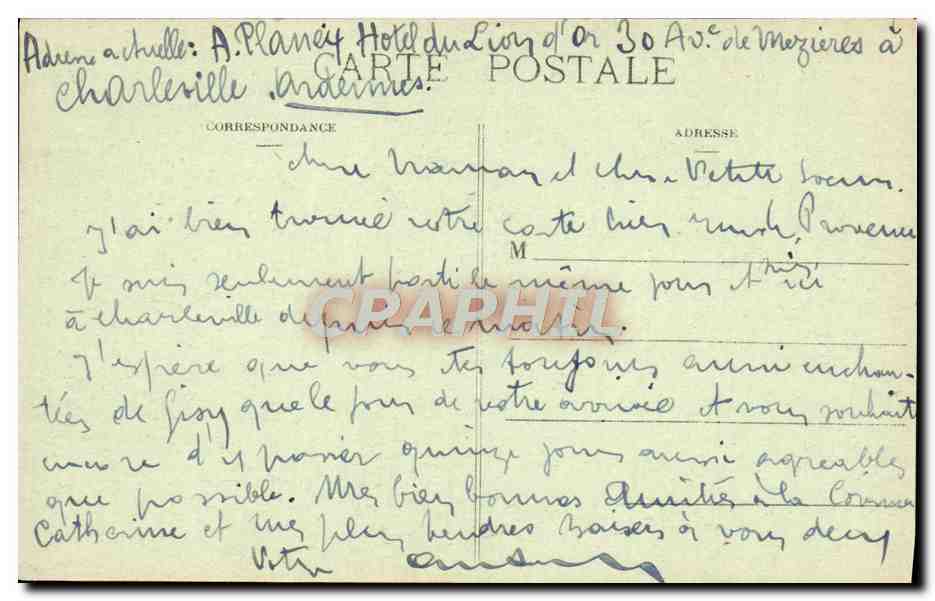 Adresse actuelle: A. Planeix Hotel du Lion d'Or 30 Av.e de Mezières à
CARTE POSTALE
Charleville. Ardennes.
CORRESPONDANCE
ADRESSE
Chère Maman et chère Petite Soeur.
J'ai bien trouvé votre carte hier rue de Provence
M
Je suis seulement parti le même jour et suis ici
à Charleville depuis ce matin.
CPAPHIL
J'espère que vous êtes toujours aussi enchan-
tées de Gisy que le jour de votre arrivée et vous souhaite
encore d'y passer quinze jours aussi agréables
que possible. Mes bien bonnes amitiés à la
Catherine et mes plus tendres baisers à vous deux
Votre